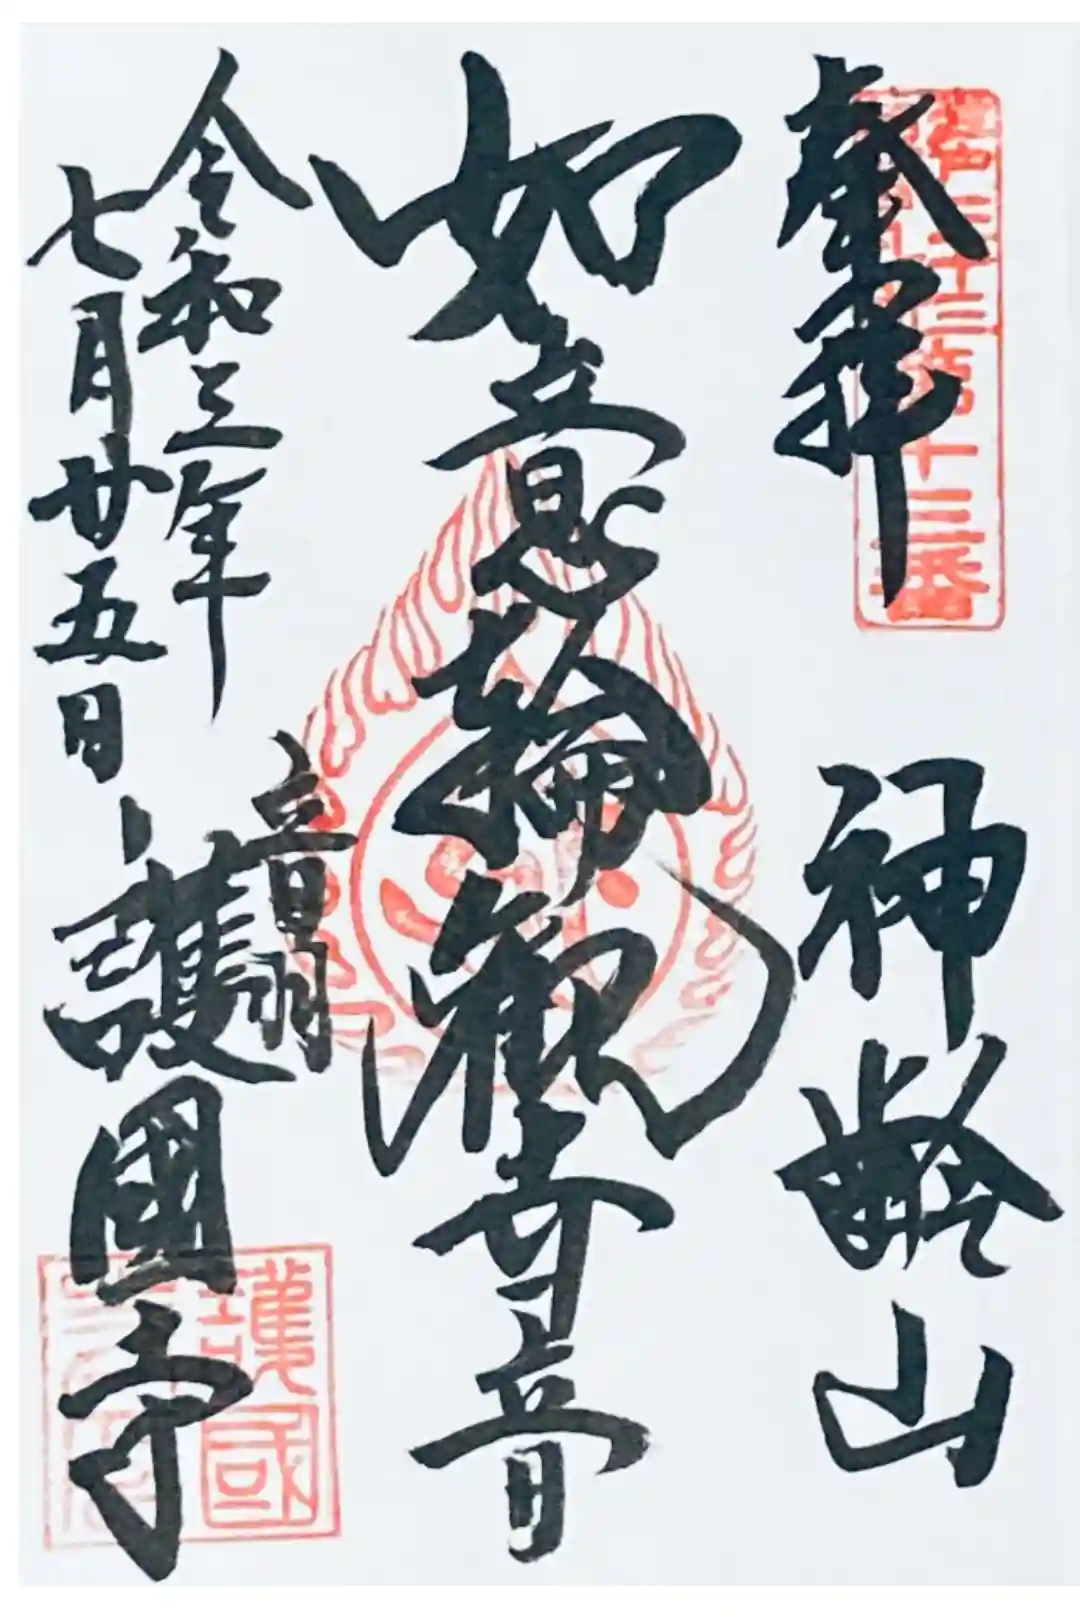 奉拝
神齢山
如意輪観世音
令和三年
七月廿五日
音羽
護國寺
護國